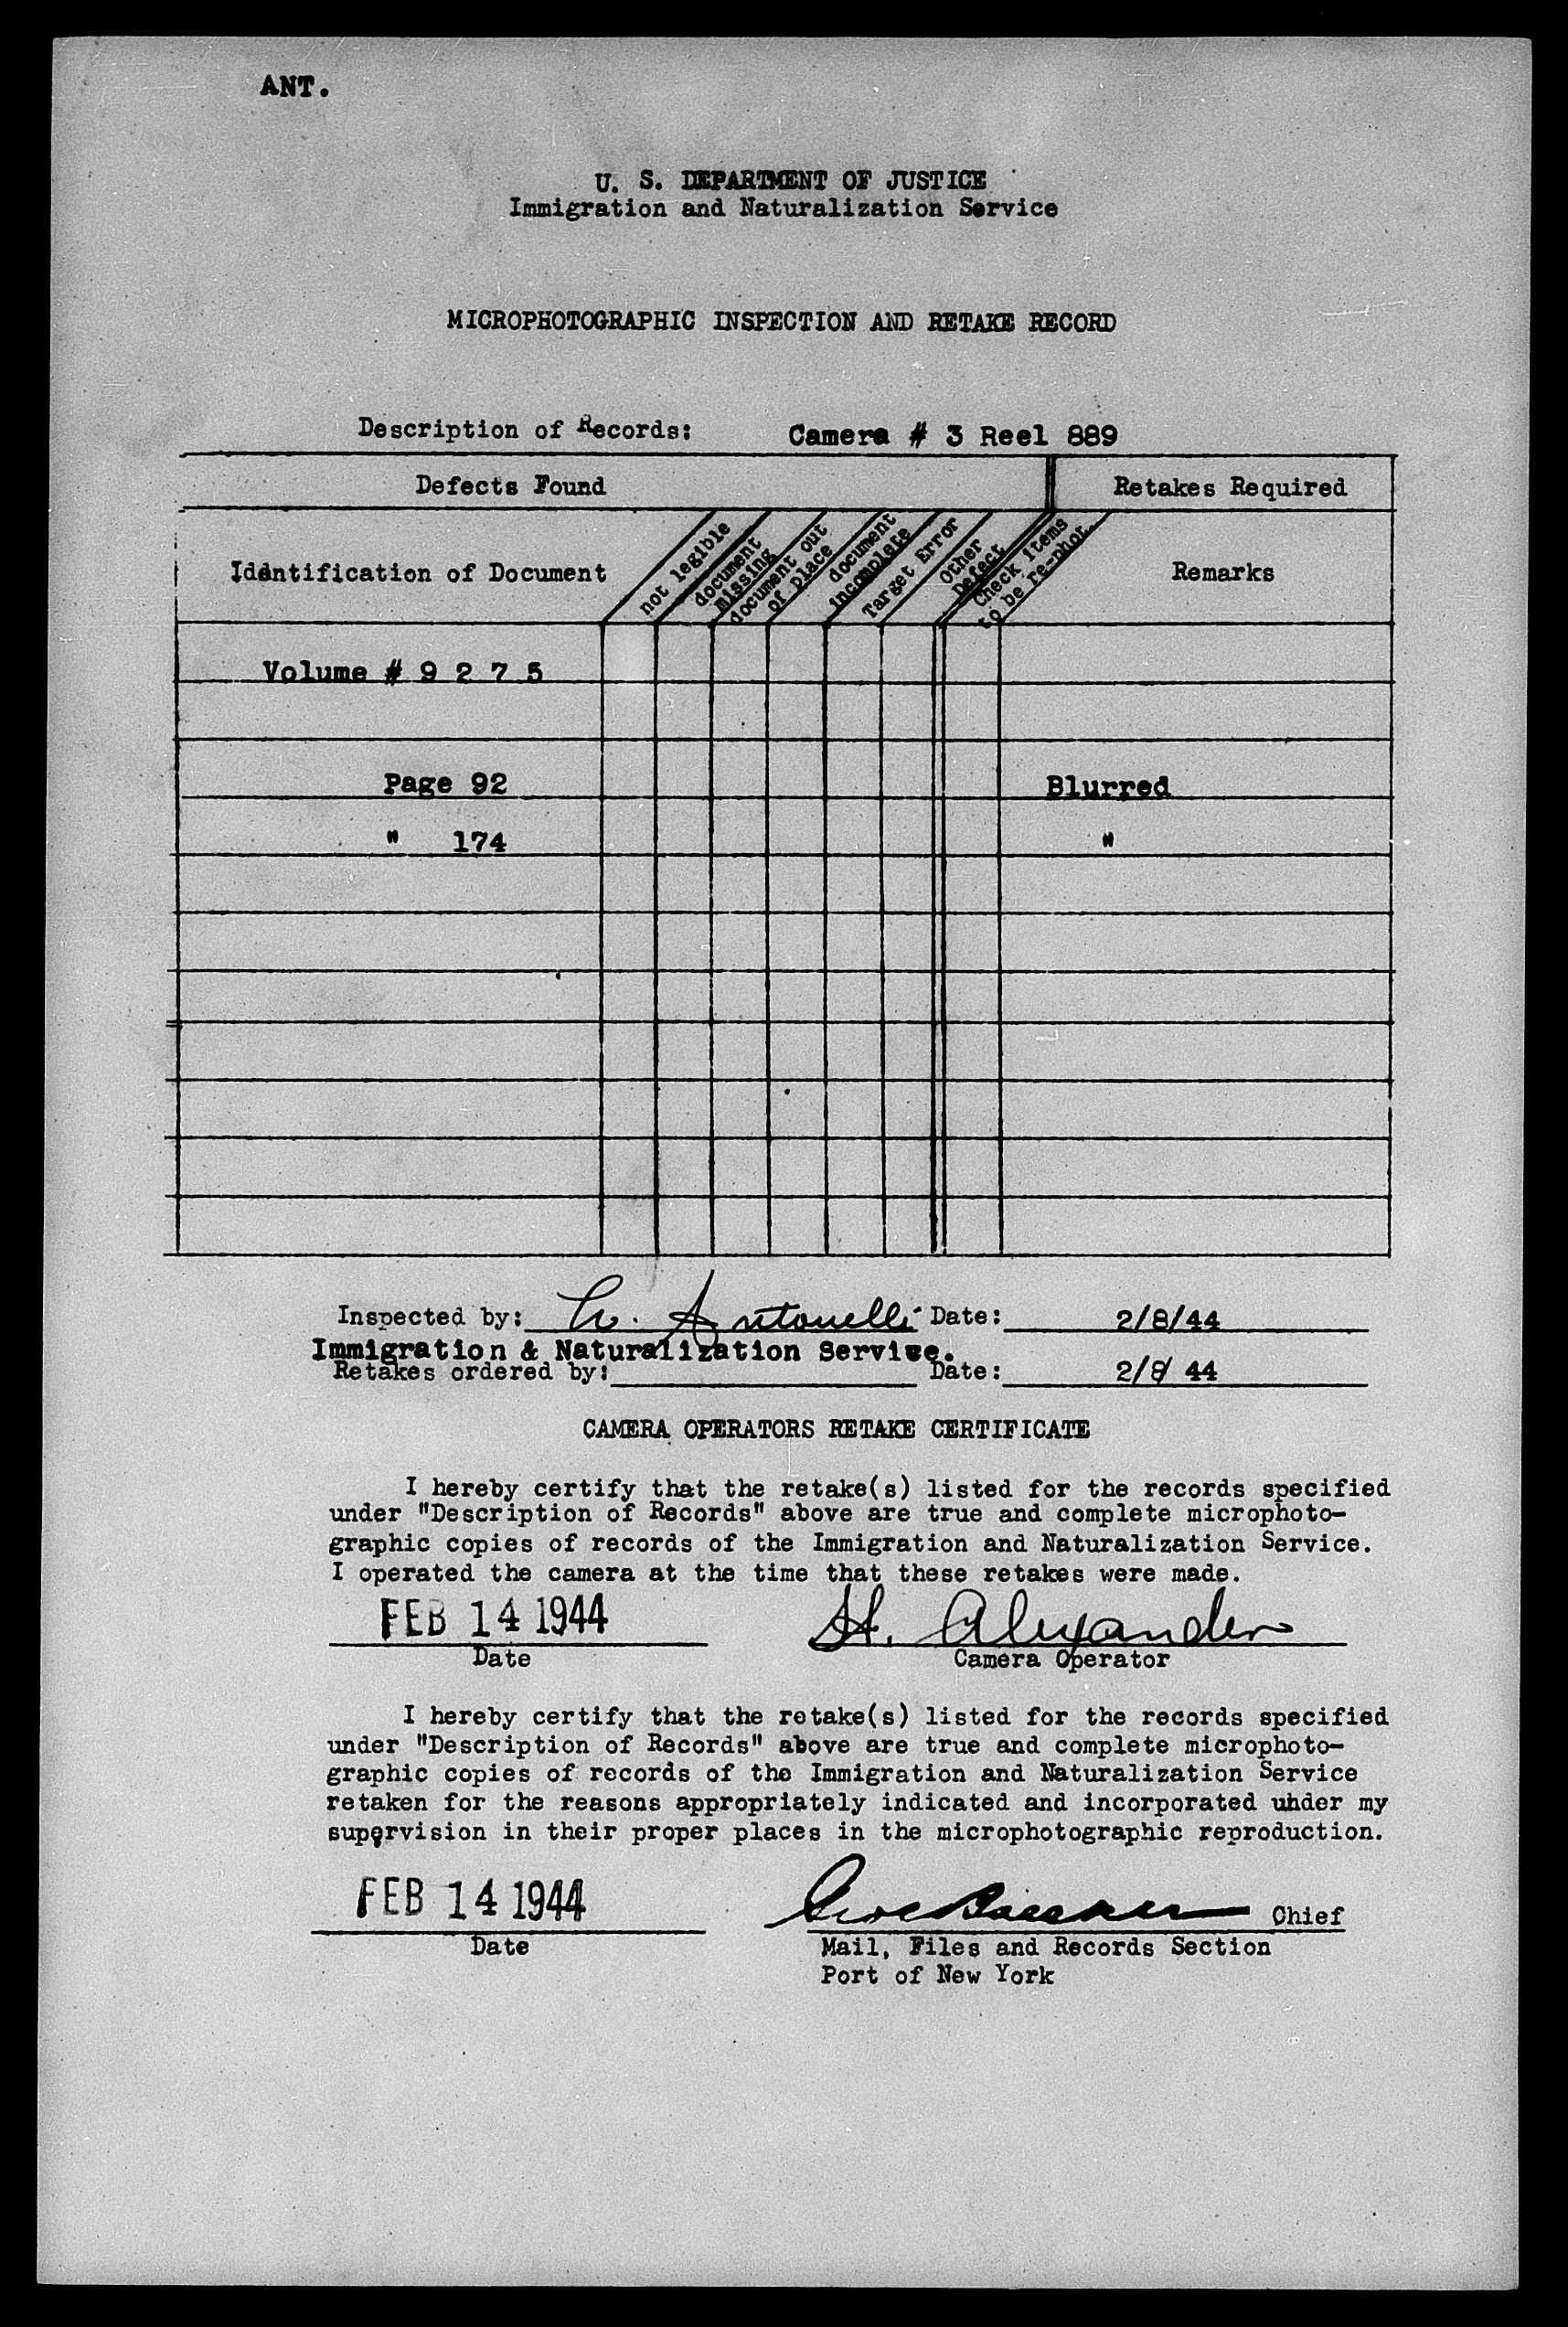 ANT.
U. S. DEPARTMENT OF JUSTICE
Immigration and Naturalization Service
MICROPHOTOGRAPHIC INSPECTION AND RETAKE RECORD
Description of Records: Camera # 3 Reel 889
Defects Found Retakes Required
Identification of Document
not legible
document
missing
document out
of place
document
incomplete
Target Error
Other
Defect
Check items
to be re-phot.
Remarks
Volume # 9 2 7 5
Page 92 Blurred
" 174 "
Inspected by: Antonelli Date: 2/8/44
Immigration & Naturalization Service.
Retakes ordered by: Date: 2/8/ 44
CAMERA OPERATORS RETAKE CERTIFICATE
I hereby certify that the retake(s) listed for the records specified
under "Description of Records" above are true and complete microphoto-
graphic copies of records of the Immigration and Naturalization Service.
I operated the camera at the time that these retakes were made.
FEB 14 1944 H. Alexander
Date Camera Operator
I hereby certify that the retake(s) listed for the records specified
under "Description of Records" above are true and complete microphoto-
graphic copies of records of the Immigration and Naturalization Service
retaken for the reasons appropriately indicated and incorporated uhder my
supervision in their proper places in the microphotographic reproduction.
FEB 14 1944 Chief
Date Mail, Files and Records Section
Port of New York